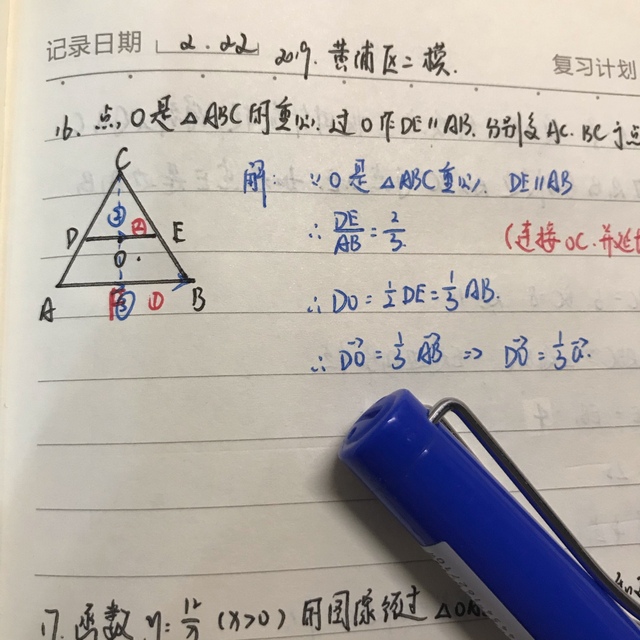 记录日期 2.22 2019.黄浦区二模. 复习计划
16. 点O是△ABC的重心.过O作DE∥AB.分别交AC.BC于点
C
D E
O
A B
③ ② ①
解: ∵O是△ABC重心, DE∥AB
∴ DE/AB = 2/3. (连接OC.并延
∴ DO = 1/2 DE = 1/3 AB.
∴ DO→ = 1/3 AB→ ⇒ DO→ = 1/3 a→.
17. 函数 y = 12/x (x>0) 的图像经过 △OA